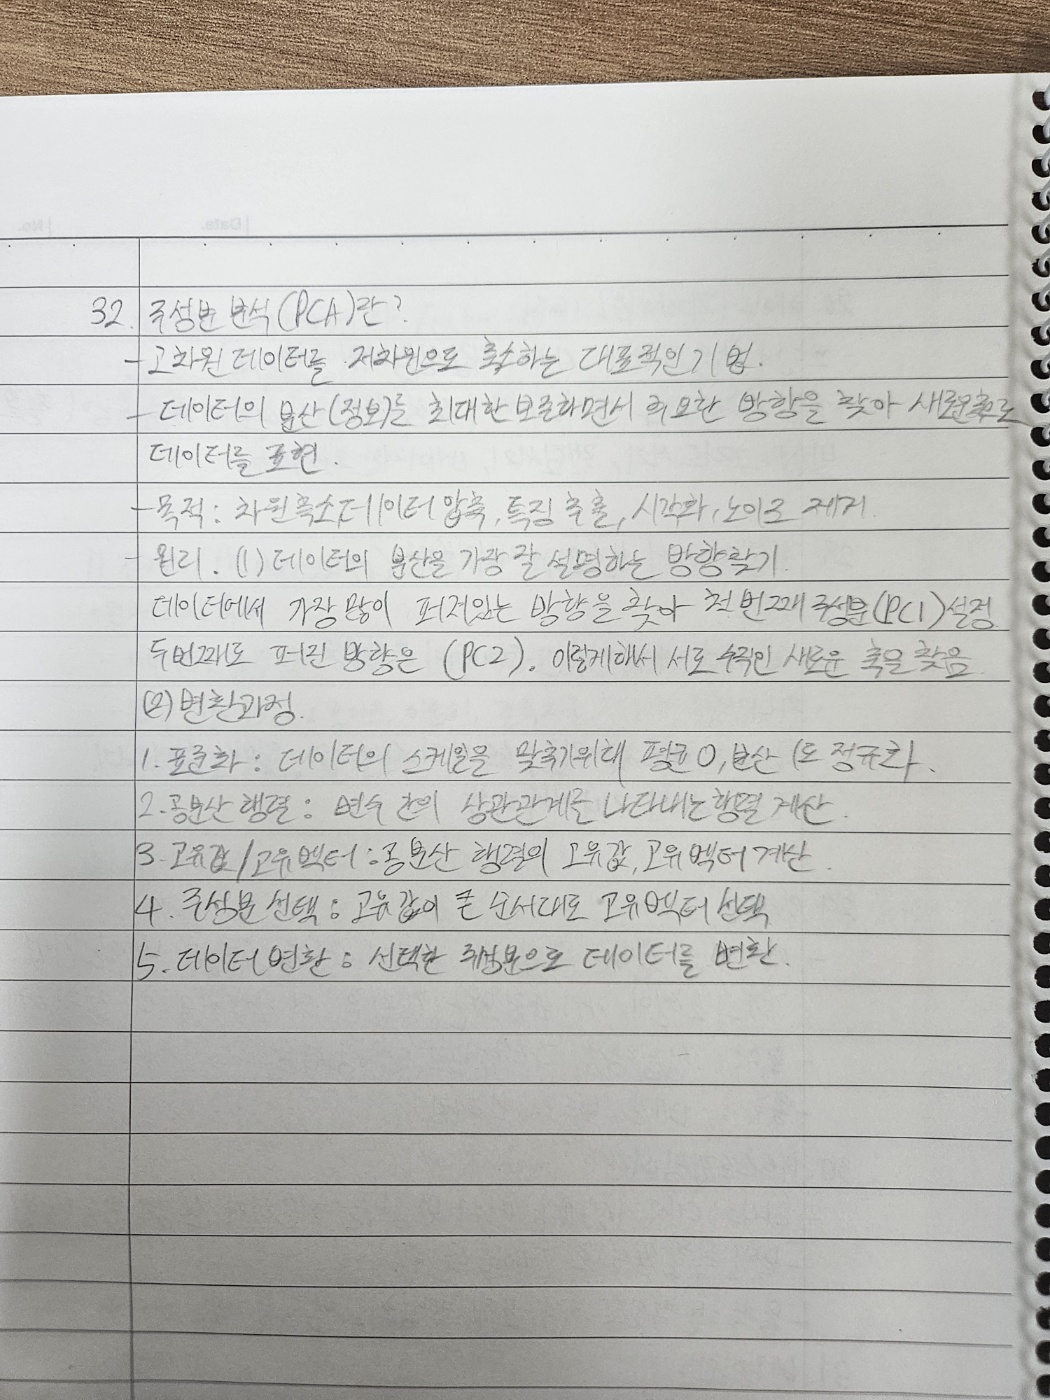 32. 주성분 분석(PCA)란?
- 고차원 데이터를 저차원으로 축소하는 대표적인 기법.
- 데이터의 분산(정보)를 최대한 보존하면서 중요한 방향을 찾아 새로운축으로
데이터를 표현.
- 목적: 차원축소, 데이터 압축, 특징 추출, 시각화, 노이즈 제거.
- 원리. (1) 데이터의 분산을 가장 잘 설명하는 방향찾기.
데이터에서 가장 많이 퍼져있는 방향을 찾아 첫 번째 주성분(PC1)설정.
두번째로 퍼진 방향은 (PC2). 이렇게해서 서로 수직인 새로운 축을 찾음.
(2) 변환과정.
1. 표준화: 데이터의 스케일을 맞추기위해 평균 0, 분산 1로 정규화.
2. 공분산 행렬: 변수 간의 상관관계를 나타내는 행렬 계산.
3. 고유값/고유벡터: 공분산 행렬의 고유값, 고유벡터 계산.
4. 주성분 선택: 고유값이 큰 순서대로 고유벡터 선택
5. 데이터 변환: 선택한 주성분으로 데이터를 변환.